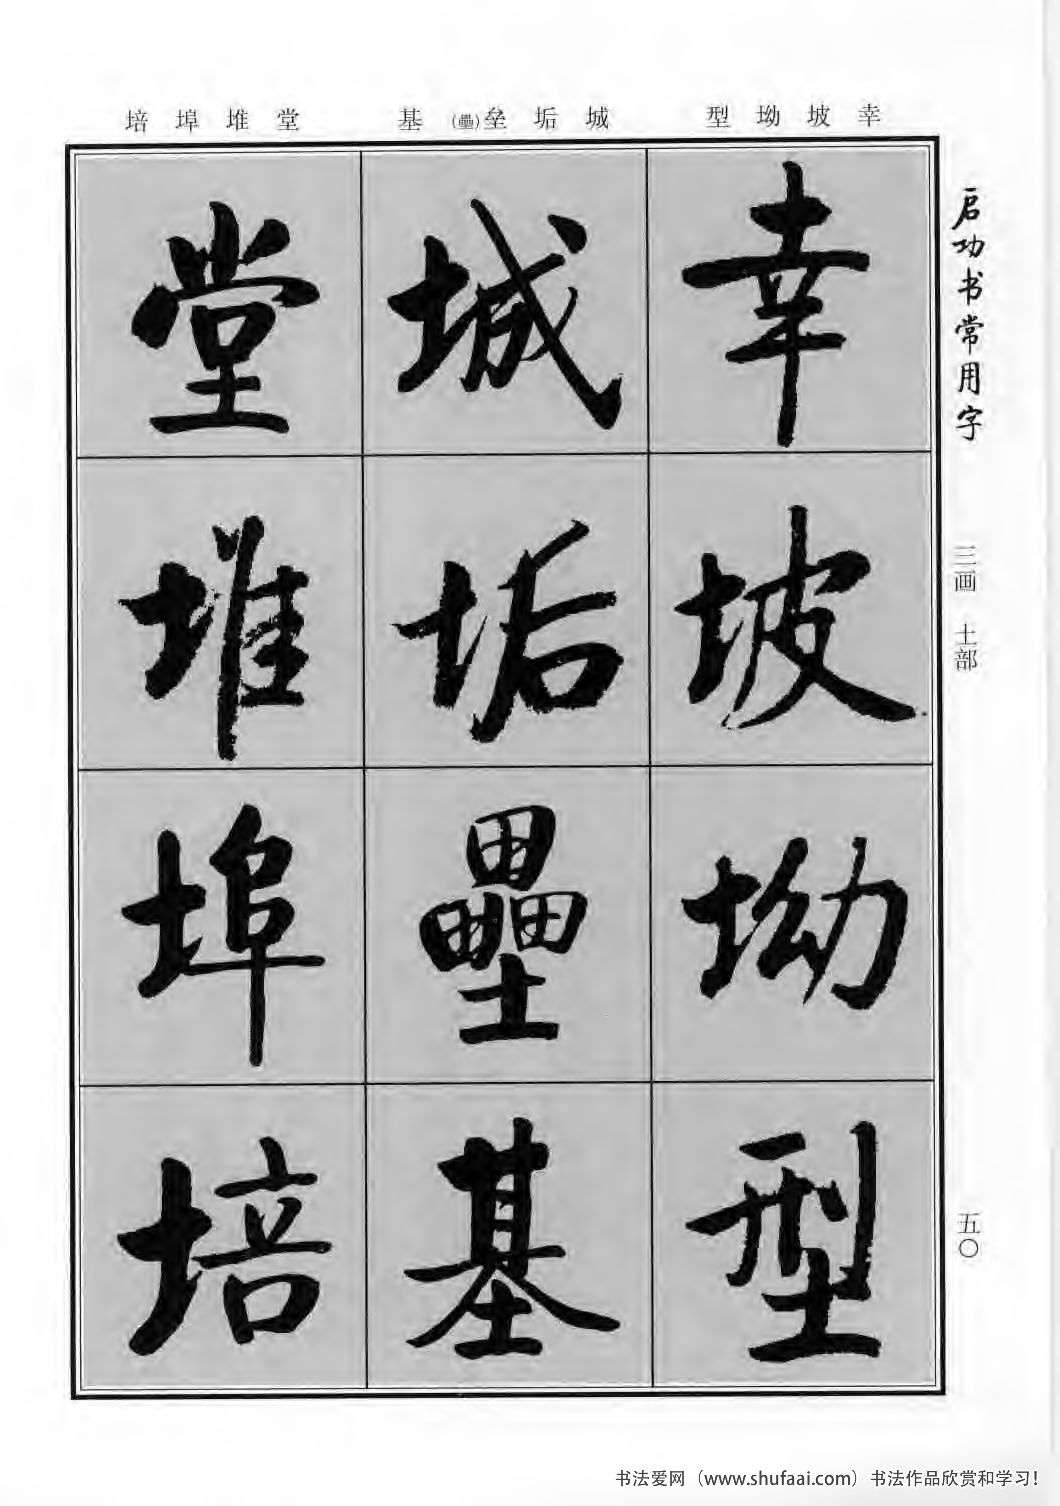 培 埠 堆 堂 基 (壘)垒 垢 城 型 坳 坡 幸
启功书常用字
三画 土部
五〇
幸
坡
坳
型
城
垢
壘
基
堂
堆
埠
培
书法爱网（www.shufaai.com）书法作品欣赏和学习!